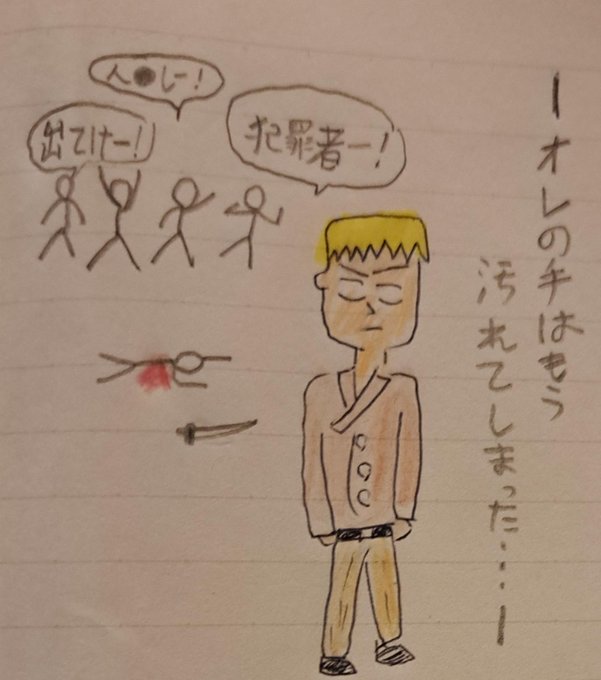 ーオレの手はもう
汚れてしまった・・・ー
人●しー!
出てけー!
犯罪者ー!